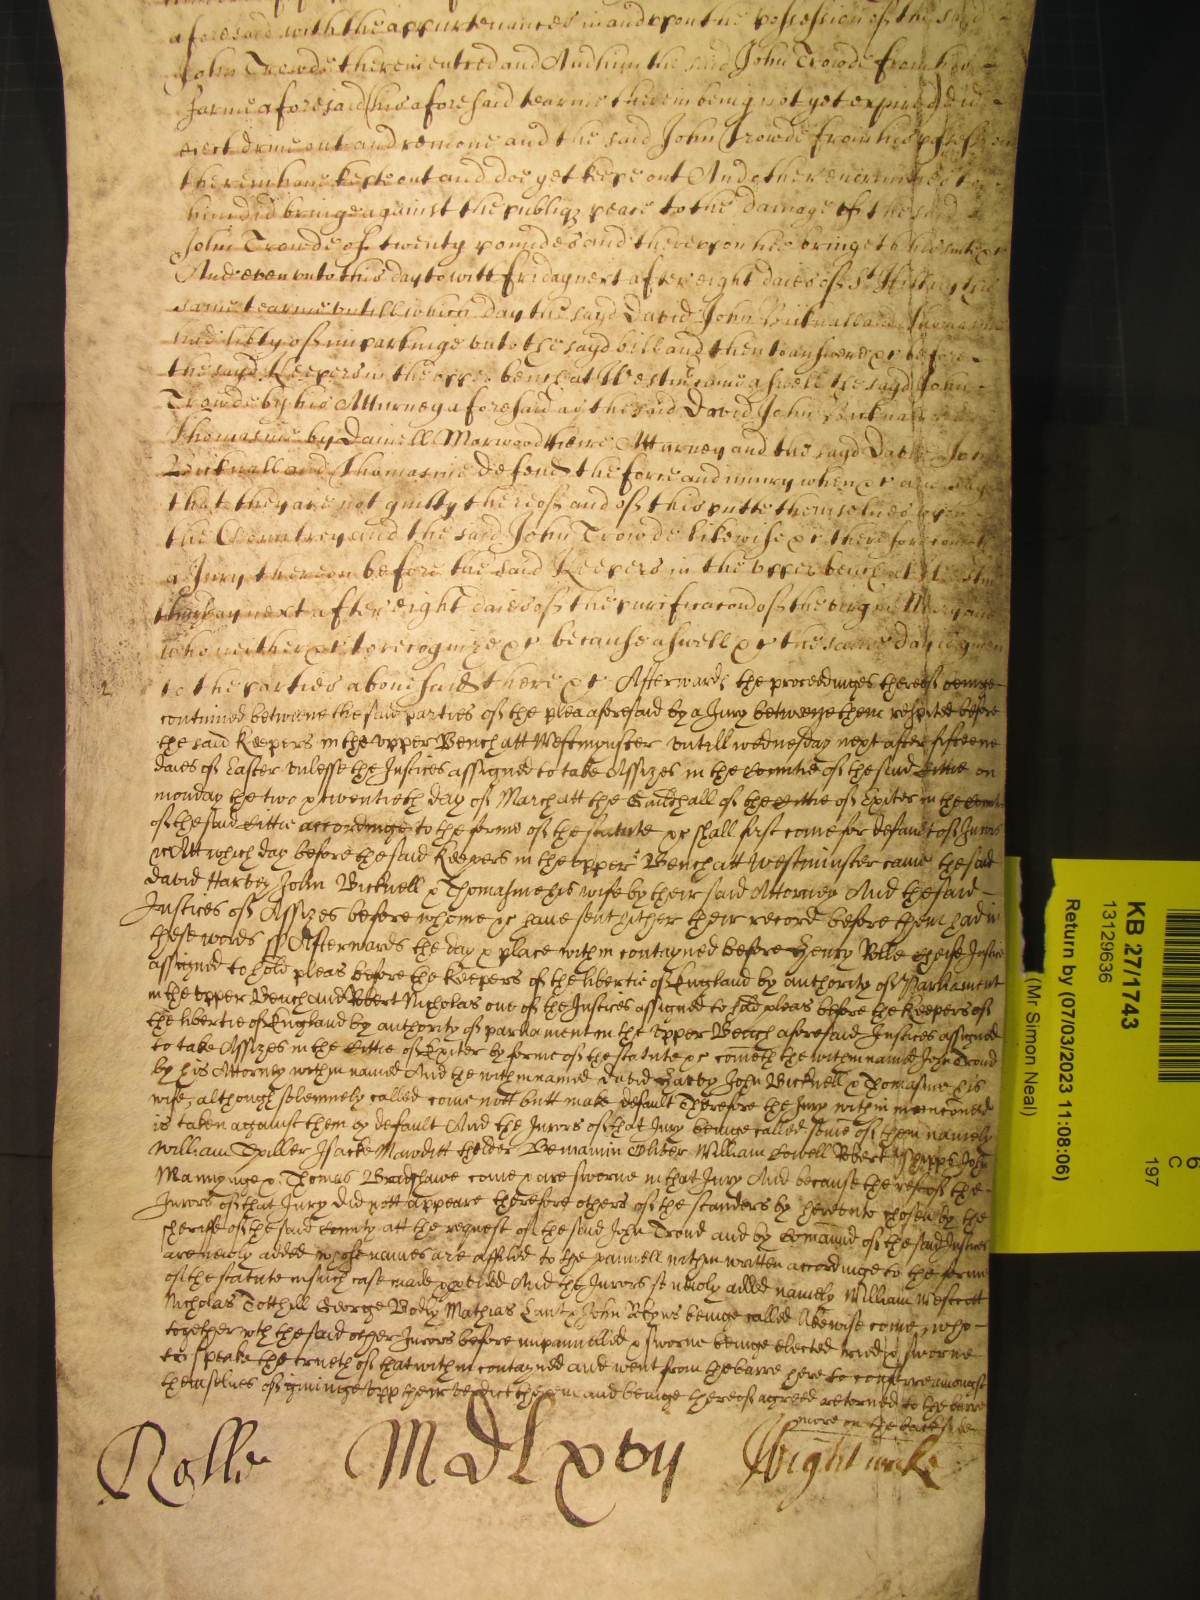 aforesaid with the appurtenances in and upon the possession of the said
John Trowde therein entred and And him the said John Trowde from his
farme aforesaid (his aforesaid tearme therein being not yet expired) did
eject drive out and remove and the said John Trowde from his possession
therein have kepte out and doe yet keepe out And other enormities to
him did bringe against the publiqz peace to the damage of the said
John Trowde of twenty poundes and thereupon hee bringeth his suite &c
And even unto this day to witt friday next after eight daies of St Hillary this
same tearme untill which day the sayd David John Bicknall and Thomasine
had libty of imparlinge unto the sayd bill and then to answere &c before
the sayd Keepers in the upper bench at Westm came aswell the sayd John
Trowde by his Atturney aforesaid as the said David John Bicknall
Thomasine by Daniell Marwood theire Atturney and the sayd David John
Bicknall and Thomasine defend the force and iniury when &c and say
that they are not guilty thereof and of this putte themselves upon
the Countrey and the said John Trowde likewise &c therefore come
a Jury thereon before the said Keepers in the upper bench at Westm
thursday next after eight daies of the purificacon of the virgin Mary and
who neither &c to recognize &c because aswell &c the same day is given
2 to the parties abovesaid there &c Afterwards the proceedinges thereof beinge
continued betweene the said parties of the plea aforesaid by a Jury betweene them respited before
the said Keepers in the upper Bench att Westminster untill wednesday next after fifteene
daies of Easter unlesse the Justices assigned to take Assizes in the Countie of the said Cittie on
monday the two & twentieth day of March att the Guildhall of the Cittie of Exiter in the County
of the said Cittie accordinge to the forme of the statute &c shall first come for default of Jurors
&c Att which day before the said Keepers in the upper Bench att Westminster came the said
David Harvey John Bicknell & Thomasine his wife by their said Attorney And the said
Justices of Assizes before whome &c have sent hither their record before them had in
these words ss Afterwards the day & place within contayned before Henry Rolle cheife Justice
assigned to hold pleas before the Keepers of the libertie of England by authority of Parliament
in the upper Bench and Robert Nicholas one of the Justices assigned to hold pleas before the Keepers of
the libertie of England by authority of parliament in the upper Bench aforesaid Justices assigned
to take Assizes in the Cittie of Exiter by forme of the statute &c cometh the within named John Trowd
by his Attorney within named And the within named David Harvy John Bicknell & Thomasine his
wife, although solemnely called come nott butt make default Therefore the Jury within mencioned
is taken against them by default And the Jurors of that Jury beinge called some of them namely
William Spiller Isacke Mawditt thelder Beniamin Oliver William Lowell Robert John
Mannynge & Thomas Bradshawe come & are sworne in that Jury And because the rest of the
Jurors of that Jury did nott appeare therefore others of the standers by hereunto chosen by the
sheriffe of the said County att the request of the said John Trowd and by Comaund of the said Justices
are newly added whose names are affiled to the pannell within written accordinge to the forme
of the statute in such case made & pvided And the Jurors so newly added namely William Westcott
Nicholas Totthill George Bodly Mathias & John beinge called likewise come, who
together wth the said other Jurors before impannelled & sworne beinge elected tried & sworne
to speake the trueth of that within contayned and went from the barre here to conferre amongst
themselves of giveinge upp their verdict therein and beinge thereof agreed returned to the barre
more on the backside
Rolle MdLxviij Wightwicke
KB 27/1743
13129636
Return by (07/03/2023 11:08:06)
(Mr Simon Neal)
197
C
6